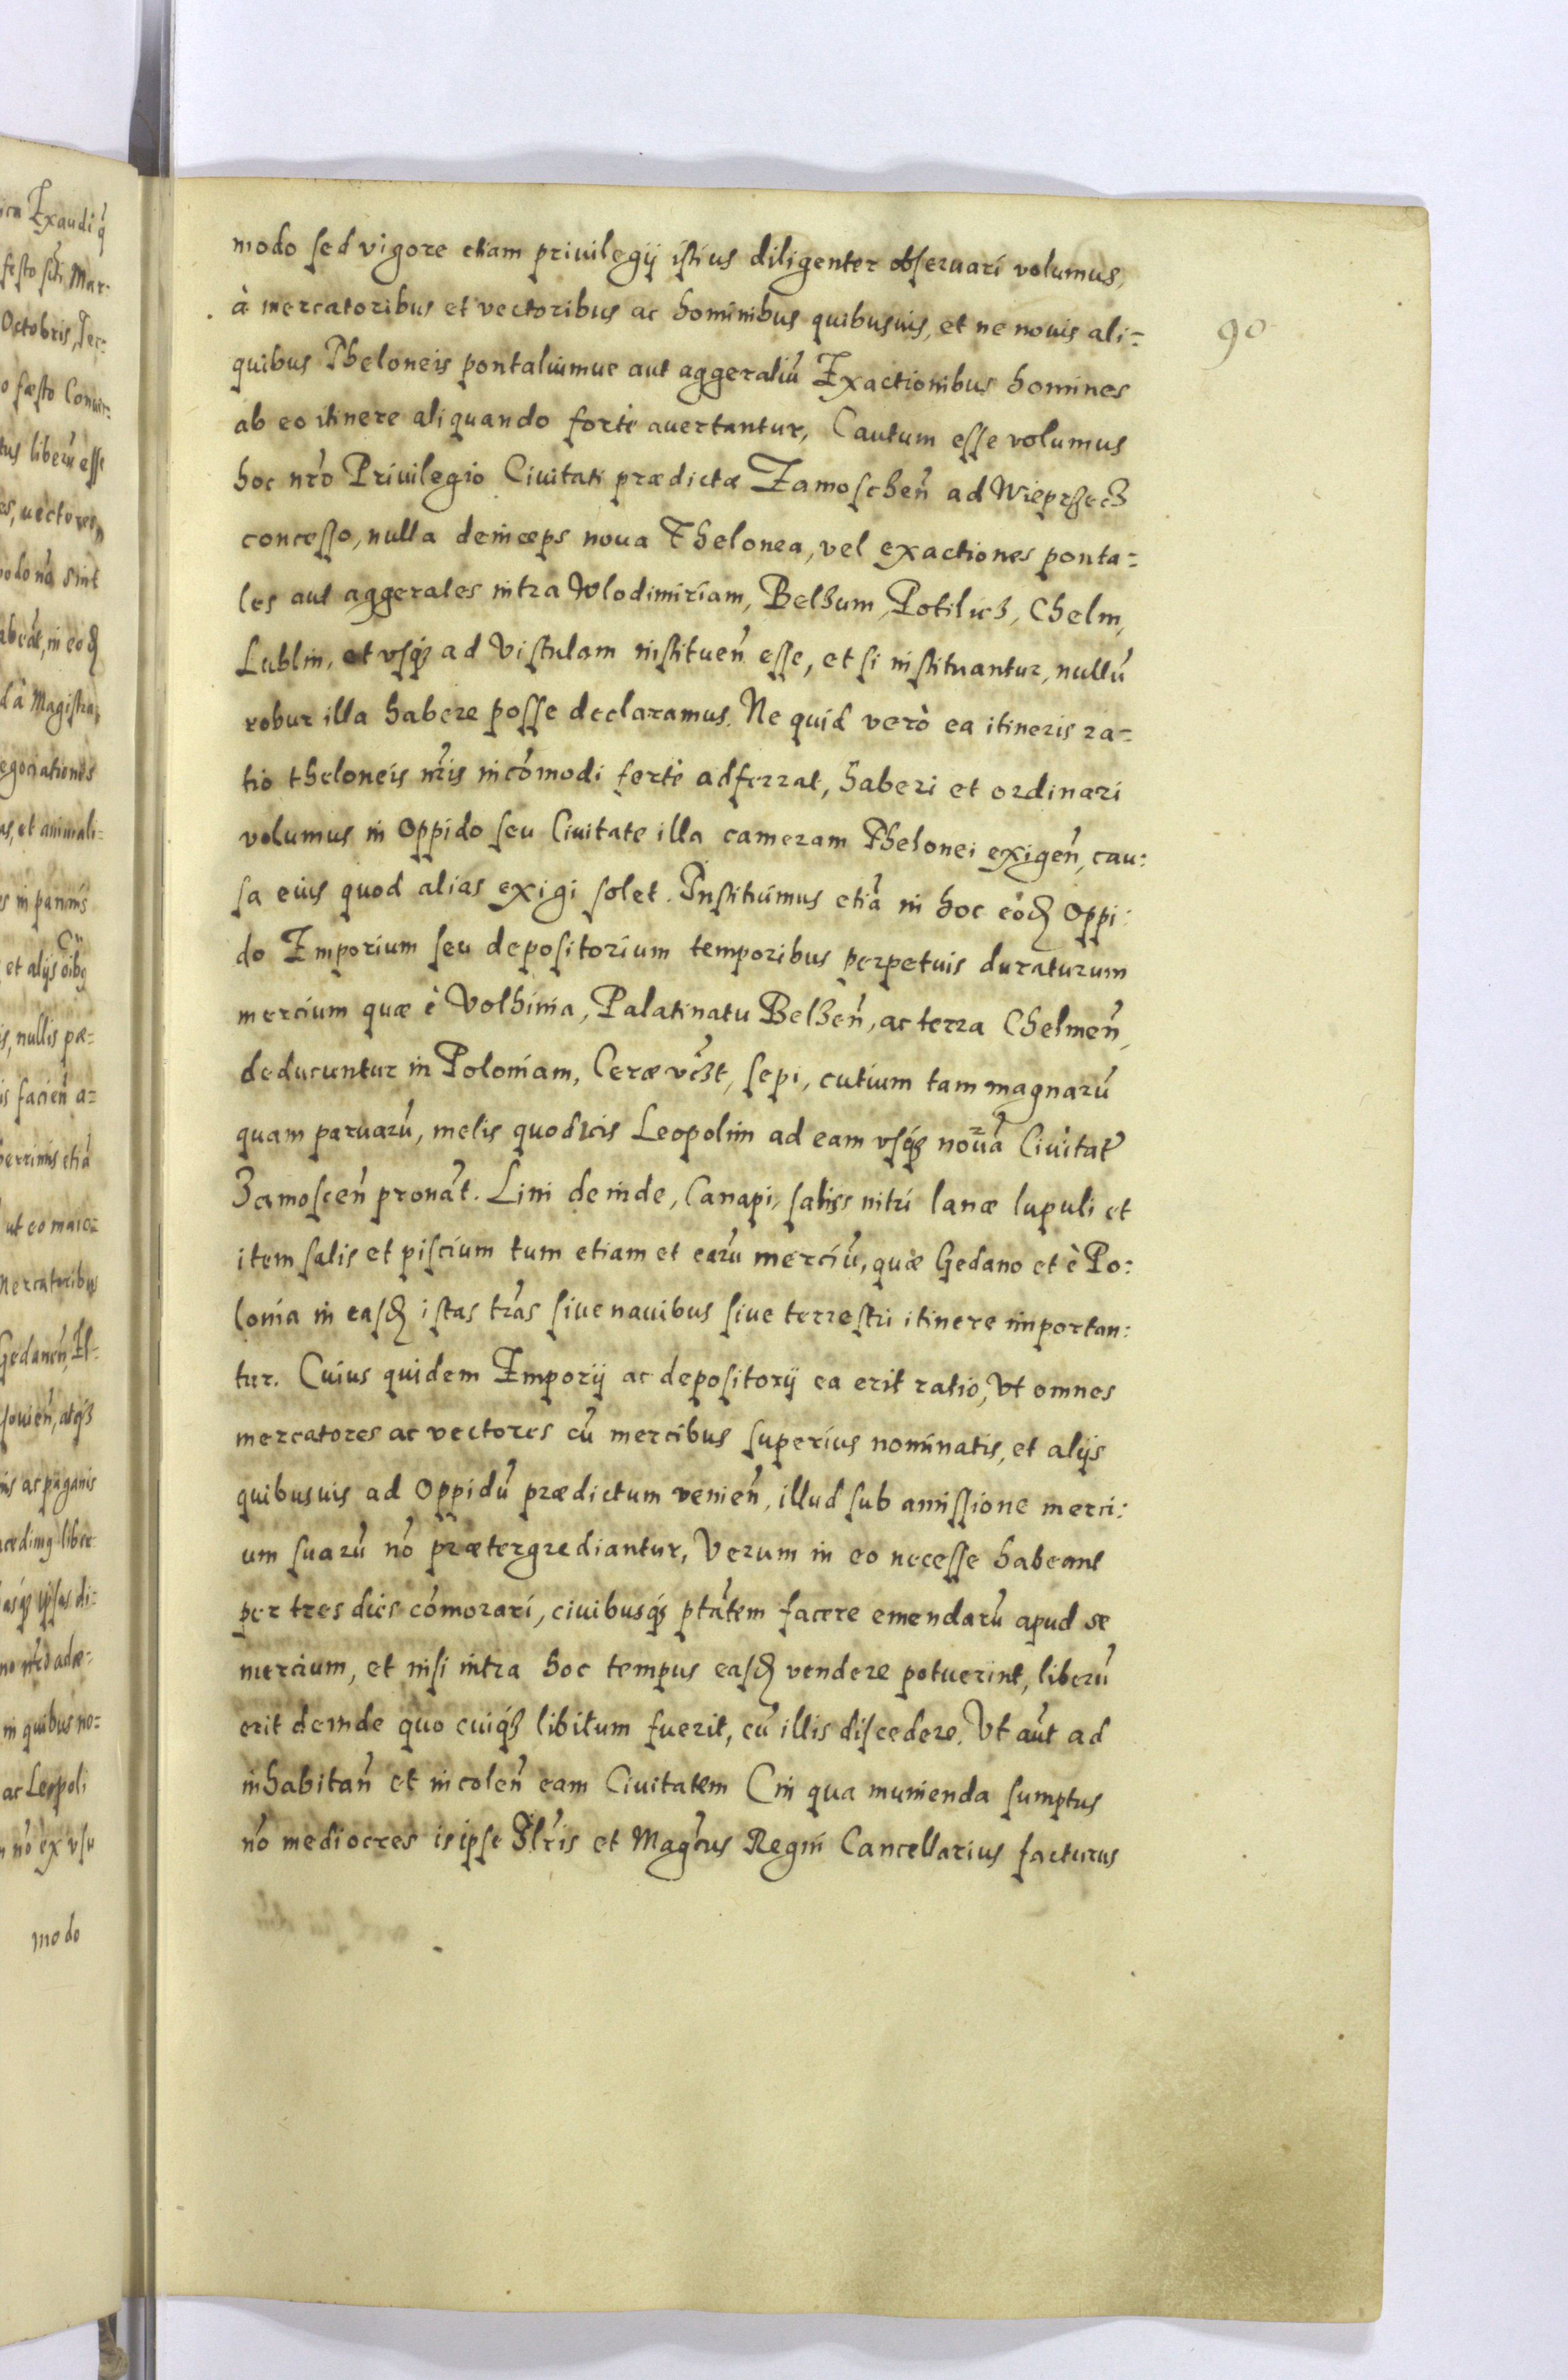 modo sed vigore etiam priuilegij istius diligenter obseruari volumus,
à mercatoribus et vectoribus ac hominibus quibusuis, et ne nouis ali=
90
quibus Theloneis pontaliumue aut aggeraliũ Exactionibus homines
ab eo itinere aliquando fortè auertantur, Cautum esse volumus
hoc nr̃o Priuilegio Ciuitati prædictæ Zamoscheñ ad Wieprzecz
concesso, nulla deinceps noua Thelonea, vel exactiones ponta=
les aut aggerales intra Wlodimiriam, Belzum, Potilicz, Chelm,
Lublin, et vsq̃ ad Vistulam instituen̄ esse, et si instituantur, nullũ
robur illa habere posse declaramus. Ne quid verò ea itineris ra=
tio theloneis nr̃is incõmodi fortè adferrat, haberi et ordinari
volumus in Oppido seu Ciuitate illa cameram Thelonei exigen̄, cau:
sa eius quod alias exigi solet. Instituimus etiã in hoc eõd Oppi:
do Emporium seu depositorium temporibus perpetuis duraturum
mercium quæ è Volhinia, Palatinatu Belzeñ, ac terra Chelmeñ,
deducuntur in Poloniam, Ceræ vz̃t, sepi, cutium tam magnarũ
quam paruarũ, melis quod icis Leopolim ad eam vsq̃ nouã Ciuitat̃
Zamosceñ pronãt. Lini deinde, Canapi, saliss nitri lanæ lupuli et
item salis et piscium tum etiam et earũ merciũ, quæ Gedano et è Po:
lonia in easd istas tr̃as siue nauibus siue terrestri itinere importan:
tur. Cuius quidem Emporij ac depositorij ea erit ratio, Vt omnes
mercatores ac vectores cũ mercibus superius nominatis, et alijs
quibusuis ad Oppidũ prædictum venieñ, illud sub amissione merci:
um suarũ nõ prætergrediantur, Verum in eo necesse habeant
per tres dies cõmorari, ciuibusq̃ ptãtem facere emendarũ apud se
mercium, et nisi intra hoc tempus easd vendere potuerint, liberũ
erit deinde quo cuiq̃ libitum fuerit, cũ illis discedere. Vt aũt ad
inhabitañ et incoleñ eam Ciuitatem (in qua munienda sumptus
nõ mediocres is ipse Illr̃is et Magc̃us Regni Cancellarius facturus